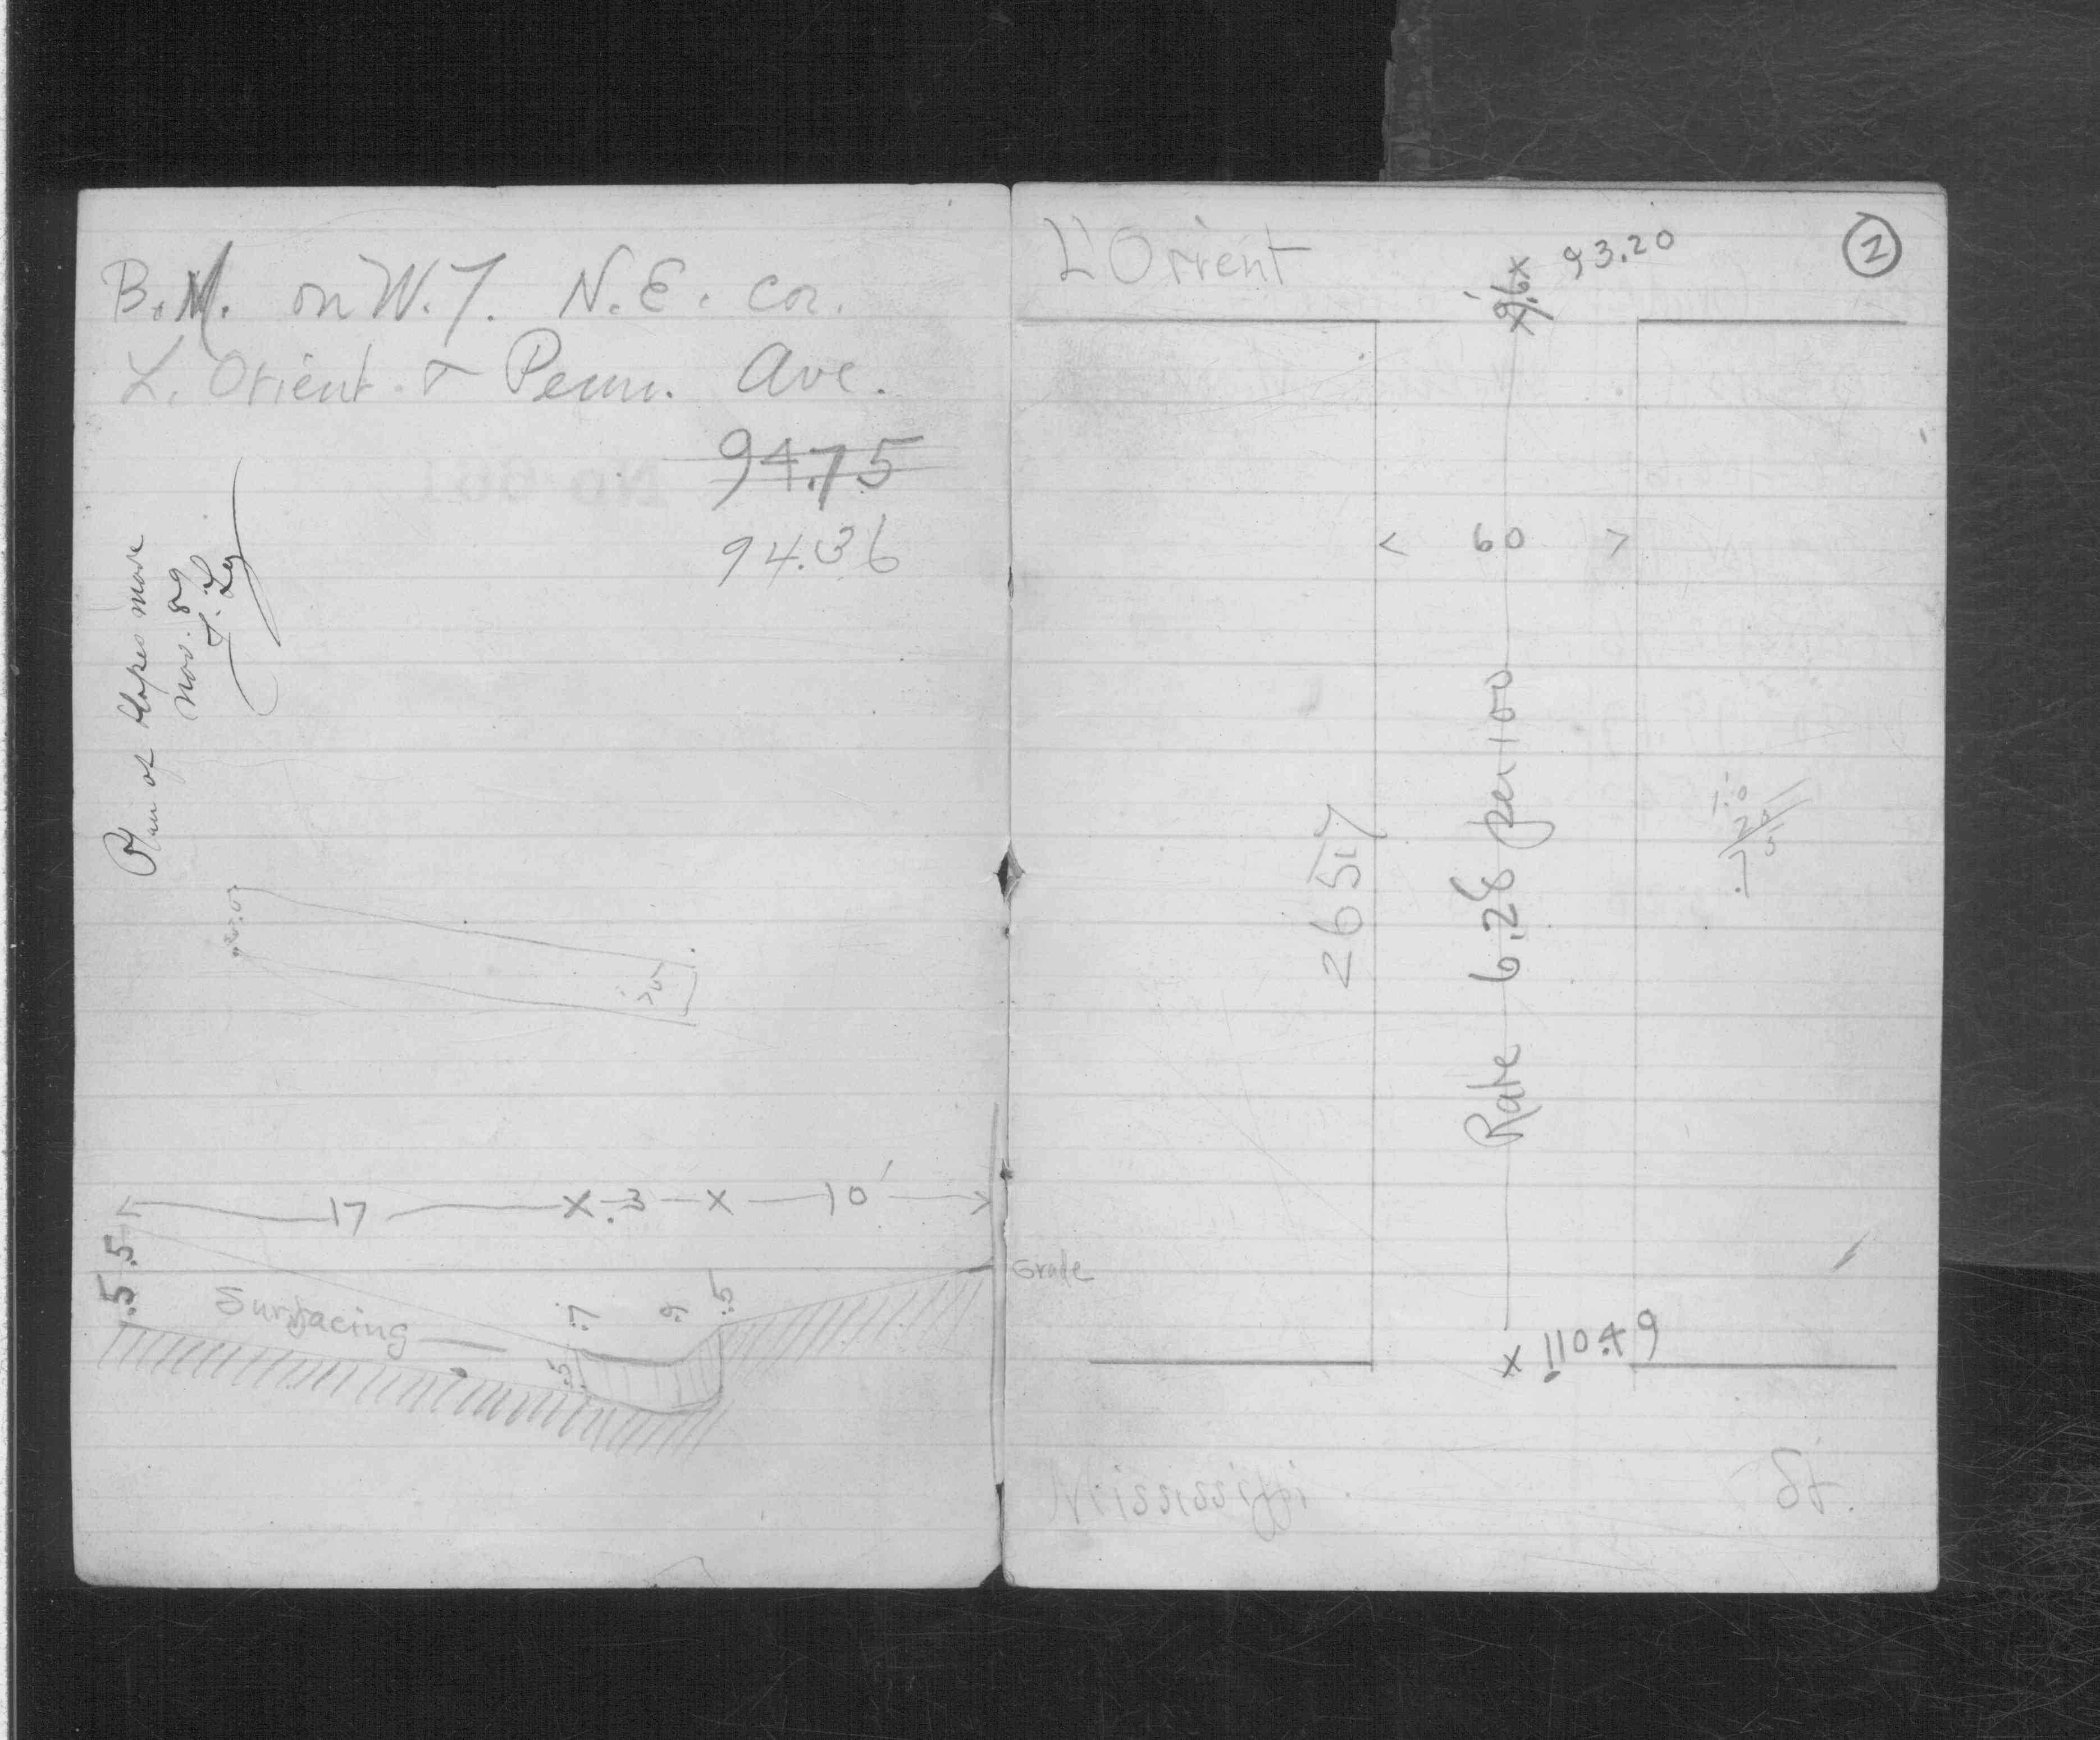 B.M. on W.T. N.E. cor.
L. Orient & Penn. Ave.
94.75
94.36
Plan of slopes made
Nov. 89
17 x .3 x 10'
.5 .5
Surfacing
.7
.9
.5
.5
Grade
L'Orient
93.20
1
< 60 >
265.7
Rate 6.28 per 100
1.0
x 110.49
Mississippi St.